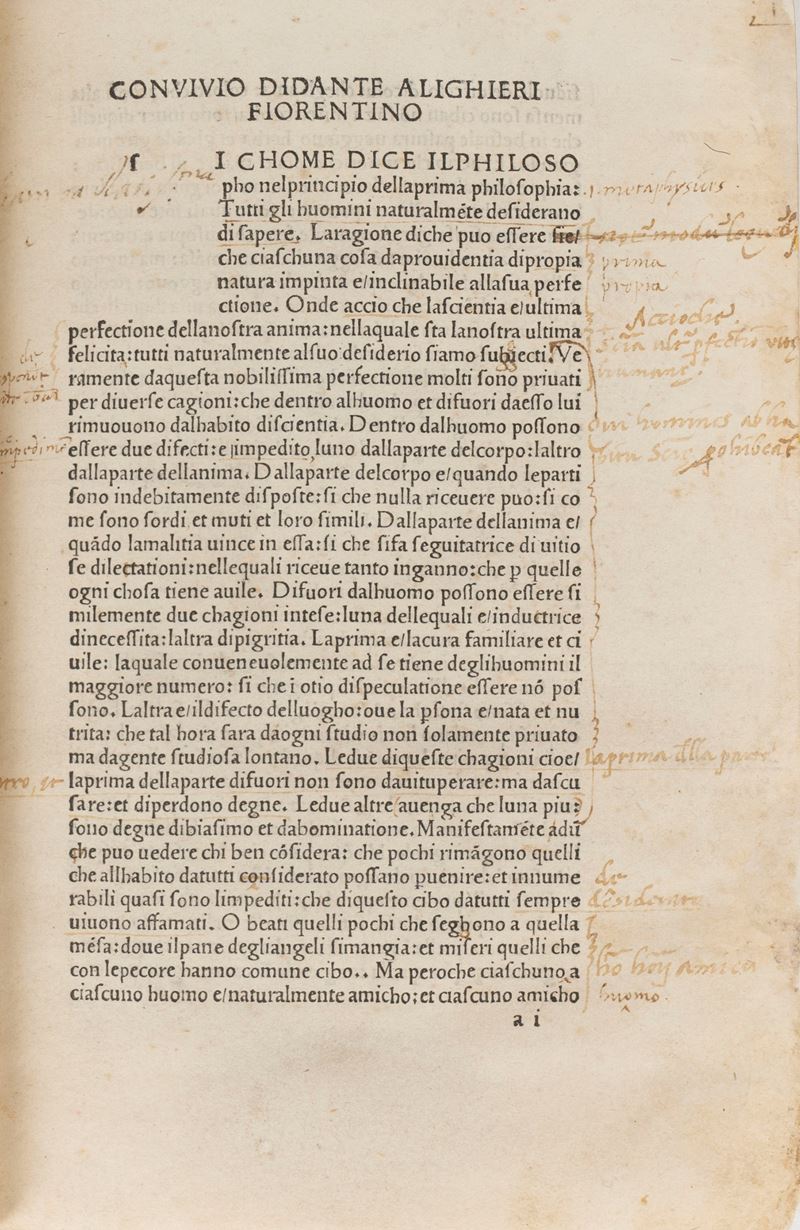 CONVIVIO DIDANTE ALIGHIERI
FIORENTINO
ſ I CHOME DICE ILPHILOSO
pho nelprincipio dellaprima philoſophia:
Tutti gli huomini naturalméte deſiderano
di ſapere. Laragione diche puo eſſere
che ciaſchuna coſa daprouidentia dipropia
natura impinta e/inclinabile allaſua perfe
ctione. Onde accio che laſcientia e/ultima
perfectione dellanoſtra anima:nellaquale ſta lanoſtra ultima
felicita:tutti naturalmente alſuo deſiderio ſiamo ſubiecti. Ve
ramente daqueſta nobiliſſima perfectione molti ſono priuati
per diuerſe cagioni:che dentro alhuomo et difuori daeſſo lui
rimuouono dalhabito diſcientia. Dentro dalhuomo poſſono
eſſere due difecti:e impedito luno dallaparte delcorpo:laltro
dallaparte dellanima. Dallaparte delcorpo e/quando leparti
ſono indebitamente diſpoſte:ſi che nulla riceuere puo:ſi co
me ſono ſordi et muti et loro ſimili. Dallaparte dellanima e/
quádo lamalitia uince in eſſa:ſi che ſifa ſeguitatrice di uitio
ſe dilectationi:nellequali riceue tanto inganno:che ꝑ quelle
ogni choſa tiene auile. Difuori dalhuomo poſſono eſſere ſi
milemente due chagioni inteſe:luna dellequali e/inductrice
dineceſſita:laltra dipigritia. Laprima e/lacura familiare et ci
uile: laquale conueneuolemente ad ſe tiene deglihuomini il
maggiore numero: ſi che i otio diſpeculatione eſſere nó poſ
ſono. Laltra e/ildifecto delluogho:oue la pſona e/nata et nu
trita: che tal hora ſara daogni ſtudio non ſolamente priuato
ma dagente ſtudioſa lontano. Ledue diqueſte chagioni cioe/
laprima dellaparte difuori non ſono dauituperare:ma daſcu
ſare:et diperdono degne. Ledue altre auenga che luna piu
ſono degne dibiaſimo et dabominatione. Manifeſtaméte ádū
che puo uedere chi ben cóſidera: che pochi rimágono quelli
che allhabito datutti conſiderato poſſano puenire:et innume
rabili quaſi ſono limpediti:che diqueſto cibo datutti ſempre
uiuono affamati. O beati quelli pochi che ſeghono a quella
méſa:doue ilpane degliangeli ſimangia:et miſeri quelli che
con lepecore hanno comune cibo.. Ma peroche ciaſchuno a
ciaſcuno huomo e/naturalmente amicho;et ciaſcuno amicho
a i
metaphysicis
prima
propia
laprima
huomo